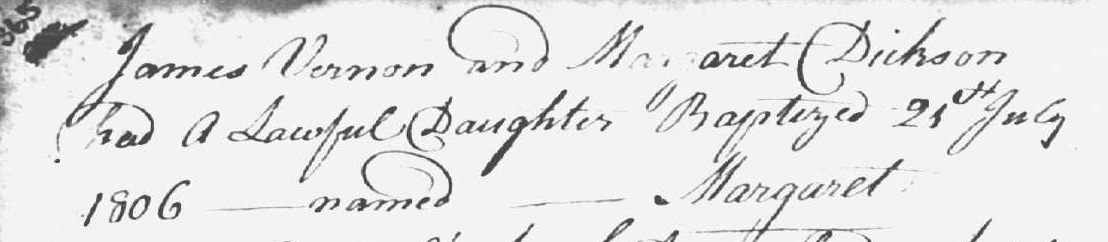 James Vernon and Margaret Dickson
had A Lawful Daughter Baptized 21st July
1806 — named — Margaret